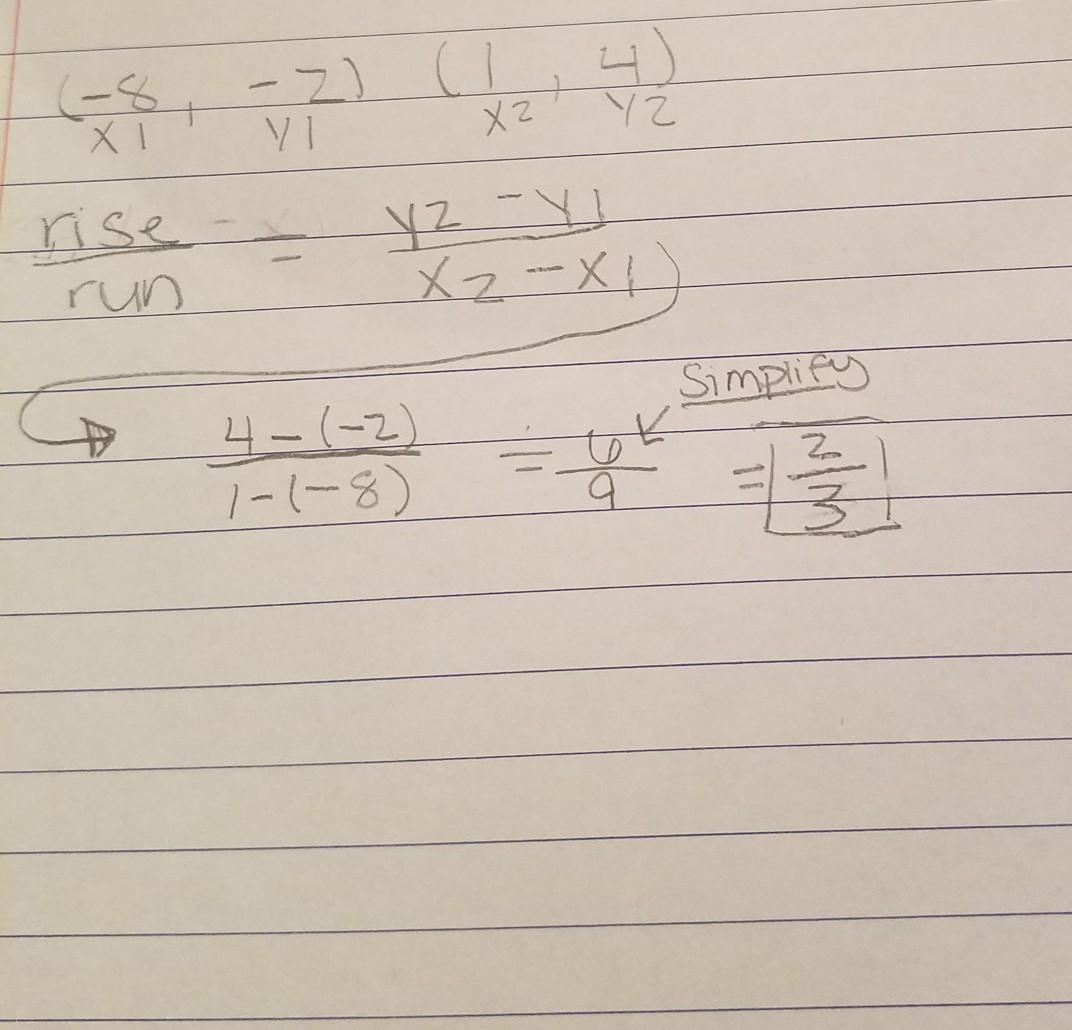 (-8, -2) (1, 4)
x1 y1 x2 y2
rise = y2 - y1
run x2 - x1
Simplify
4 - (-2) = 6 = 2
1 - (-8) 9 3